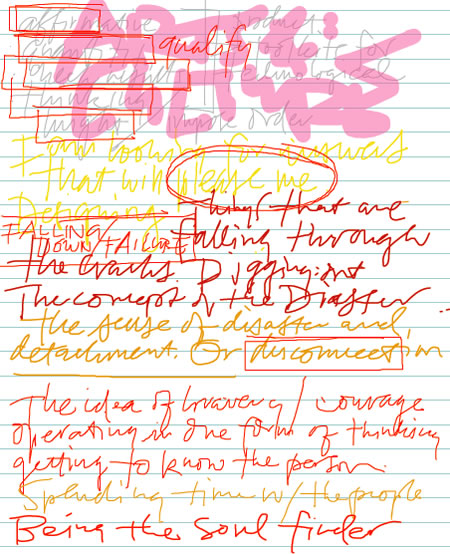 affirmative product
qualify for
technological
thinking
might impose order
I am looking for answers
that will please me
Designing things that are
FALLING
DOWN/FAILURE falling through
the cracks Digging into
The concept of the Disaster
the sense of disaster and
detachment. Or disconnection
The idea of bravery / courage
operating in one form of thinking
getting to know the person.
Spending time w/ the people
Being the soul finder